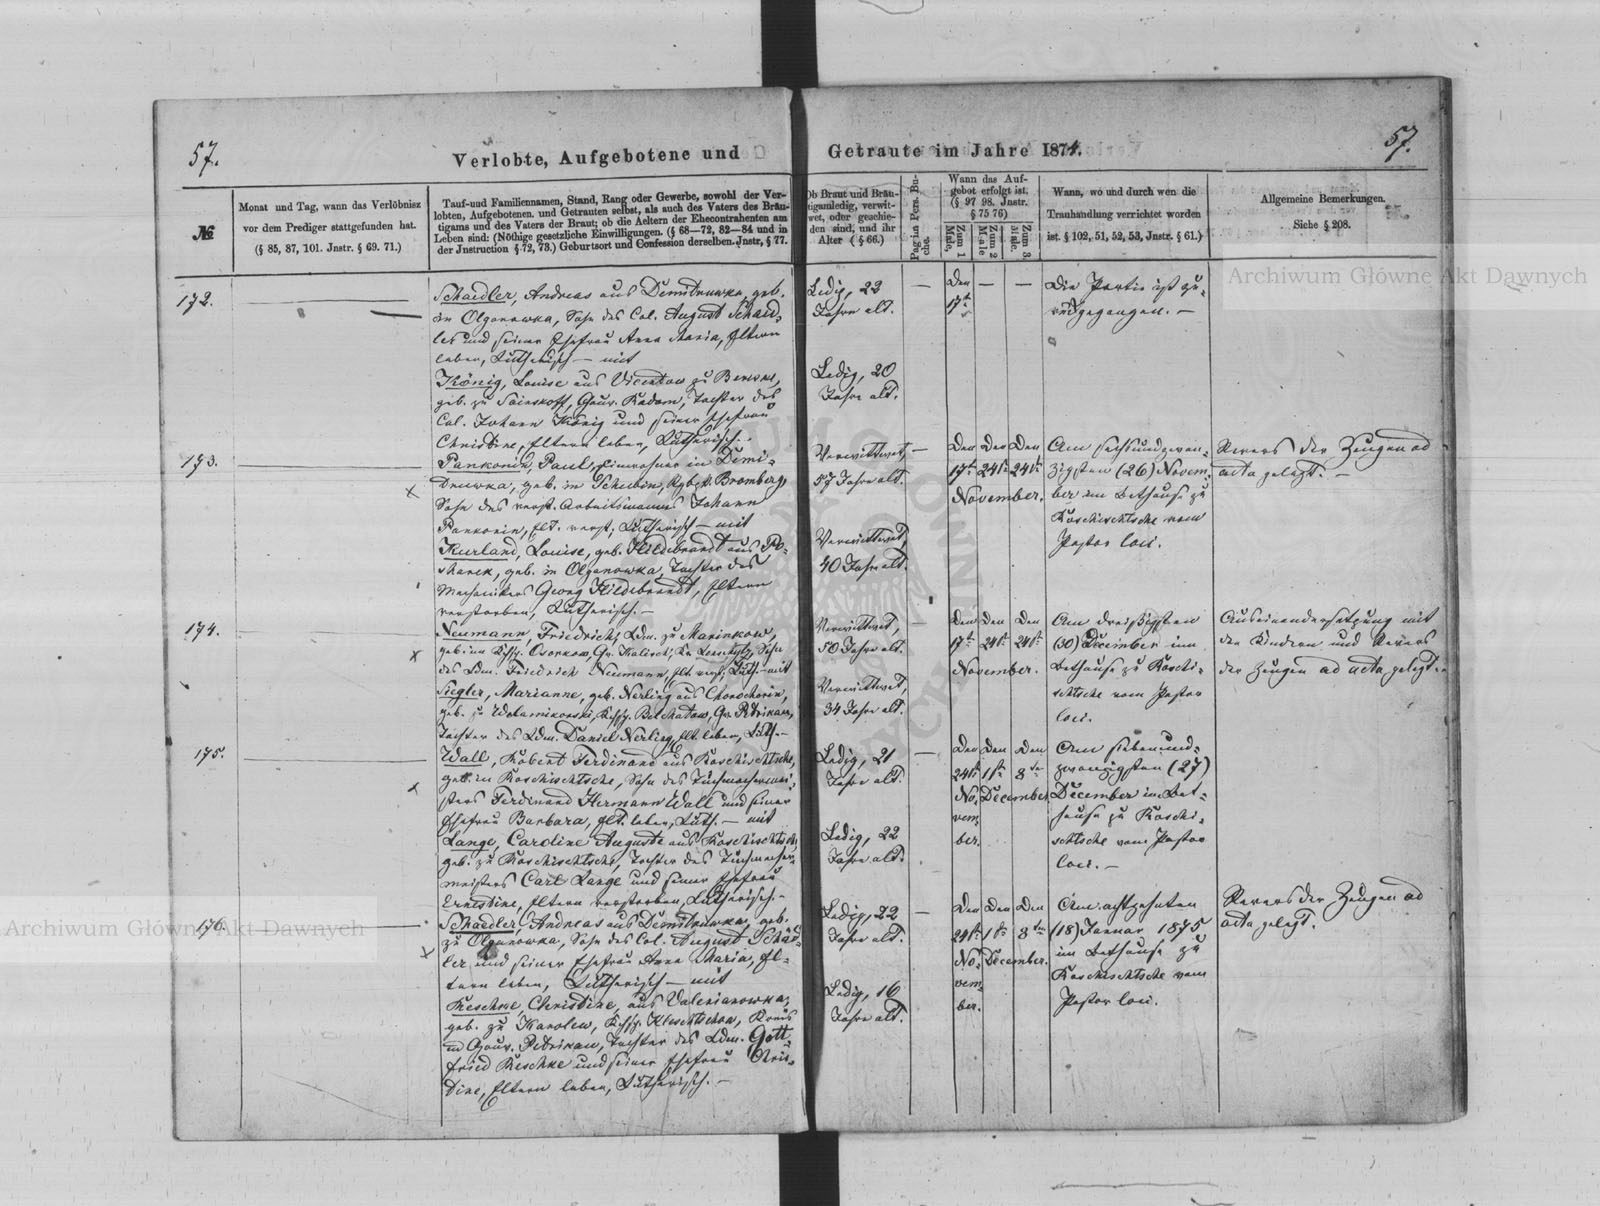 57.
Verlobte, Aufgebotene und
Getraute im Jahre 1874.
57.
№
Monat und Tag, wann das Verlöbnisz
vor dem Prediger stattgefunden hat.
(§ 85, 87, 101. Jnstr. § 69. 71.)
Tauf-und Familiennamen, Stand, Rang oder Gewerbe, sowohl der Ver-
lobten, Aufgebotenen. und Getrauten selbst, als auch des Vaters des Bräu-
tigams und des Vaters der Braut; ob die Aeltern der Ehecontrahenten am
Leben sind: (Nöthige gesetzliche Einwilligungen. (§ 68—72, 82—84 und in
der Jnstruction § 72, 73.) Geburtsort und Confession derselben. Jnstr, § 77.
Ob Braut und Bräu-
tigam ledig, verwit-
wet, oder geschie-
den sind, und ihr
Alter (§ 66.)
Pag in Pers. Bu-
che.
Wann das Auf-
gebot erfolgt ist.
(§ 97 98. Jnstr.
§ 75 76)
Zum 1 Male,
Zum 2 Male
Zum 3 Male.
Wann, wo und durch wen die
Trauhandlung verrichtet worden
ist. § 102, 51, 52, 53, Jnstr. § 61.)
Allgemeine Bemerkungen.
Siehe § 208.
172.
Schaedler, Andreas aus Demidruwka, geb.
in Olganowka, Sohn des Col. August Schäd-
ler und seiner Ehefrau Anna Maria, Eltern
leben, Lutherisch — mit
König, Louise aus
geb. zu Gouv. Radom, Tochter des
Col. Johann König und seiner Ehefrau
Christine, Eltern leben, Lutherisch.—
Ledig, 23
Jahre alt.
Ledig, 20
Jahre alt.
—
Den
17t
— —
Die Partie ist zu-
rückgegangen. —
173.
Pankonin, Paul, Einwohner in Demi-
druwka, geb. in Schubin, Rgbzk. Bromberg,
Sohn des verst. Arbeitsmannes Johann
Pankonin, Elt. verst., Lutherisch — mit
Kurland, Louise, geb. Hildebrandt aus Po-
, geb. in Olganowka, Tochter des
Mechanikers Georg Hildebrandt, Eltern
verstorben, Lutherisch.—
Verwittwet,
57 Jahre alt.
Verwittwet,
40 Jahre alt.
—
Den Den Den
17t 24t 24t
November.
Am sechsundzwan-
zigsten (26) Novem-
ber im Bethause zu
Roschischtsche vom
Pastor loci.
Revers der Zeugen ad
acta gelegt. —
174.
Neumann, Friedrich, Ldm. zu Marinkow,
geb. im Ozorkow, Gv. Kalisch, Kr. Sohn
des Ldm. Friedrich Neumann, Elt. verst., Luth.—mit
Siegler, Marianne, geb. Nerling aus
geb. zu Belchatow, Gv. Petrikau,
Tochter des Ldm. Daniel Nerling, Elt. leben, Luth.—
Verwittwet,
50 Jahre alt.
Verwittwet,
34 Jahre alt.
—
Den Den Den
17t 24t 24t
November.
Am dreißigsten
(30) December im
Bethause zu Roschi-
schtsche vom Pastor
loci.
Auseinandersetzung mit
den Kindern und Revers
der Zeugen ad acta gelegt.
175.
Wall, Robert Ferdinand aus Roschischtsche,
geb. in Roschischtsche, Sohn des Tuchmachermei-
sters Ferdinand Hermann Wall und seiner
Ehefrau Barbara, Elt. leben, Luth. — mit
Lange, Caroline Auguste aus Roschischtsche,
geb. zu Roschischtsche, Tochter des Tuchmacher-
meisters Carl Lange und seiner Ehefrau
Ernestine, Eltern verstorben, Lutherisch.—
Ledig, 21
Jahre alt.
Ledig, 22
Jahre alt.
—
Den Den Den
24t 1t 8te
No- December.
vem-
ber.
Am siebenund-
zwanzigsten (27)
December im Bet-
hause zu Roschi-
schtsche vom Pastor
loci. —
176.
Schaedler, Andreas aus Demidruwka, geb.
zu Olganowka, Sohn des Col. August Schäd-
ler und seiner Ehefrau Anna Maria, El-
tern leben, Lutherisch — mit
Reschke, Christine, aus Valerianowka,
geb. zu Karolew, Kreis
und Gouv. Petrikau, Tochter des Ldm. Gott-
fried Reschke und seiner Ehefrau Chris-
tine, Eltern leben, Lutherisch. —
Ledig, 22
Jahre alt.
Ledig, 16
Jahre alt.
—
Den Den Den
24t 1t 8ten
No- December.
vem-
ber.
Am achtzehnten
(18) Januar 1875
im Bethause zu
Roschischtsche vom
Pastor loci.
Revers der Zeugen ad
acta gelegt.
Archiwum Główne Akt Dawnych
Archiwum Główne Akt Dawnych